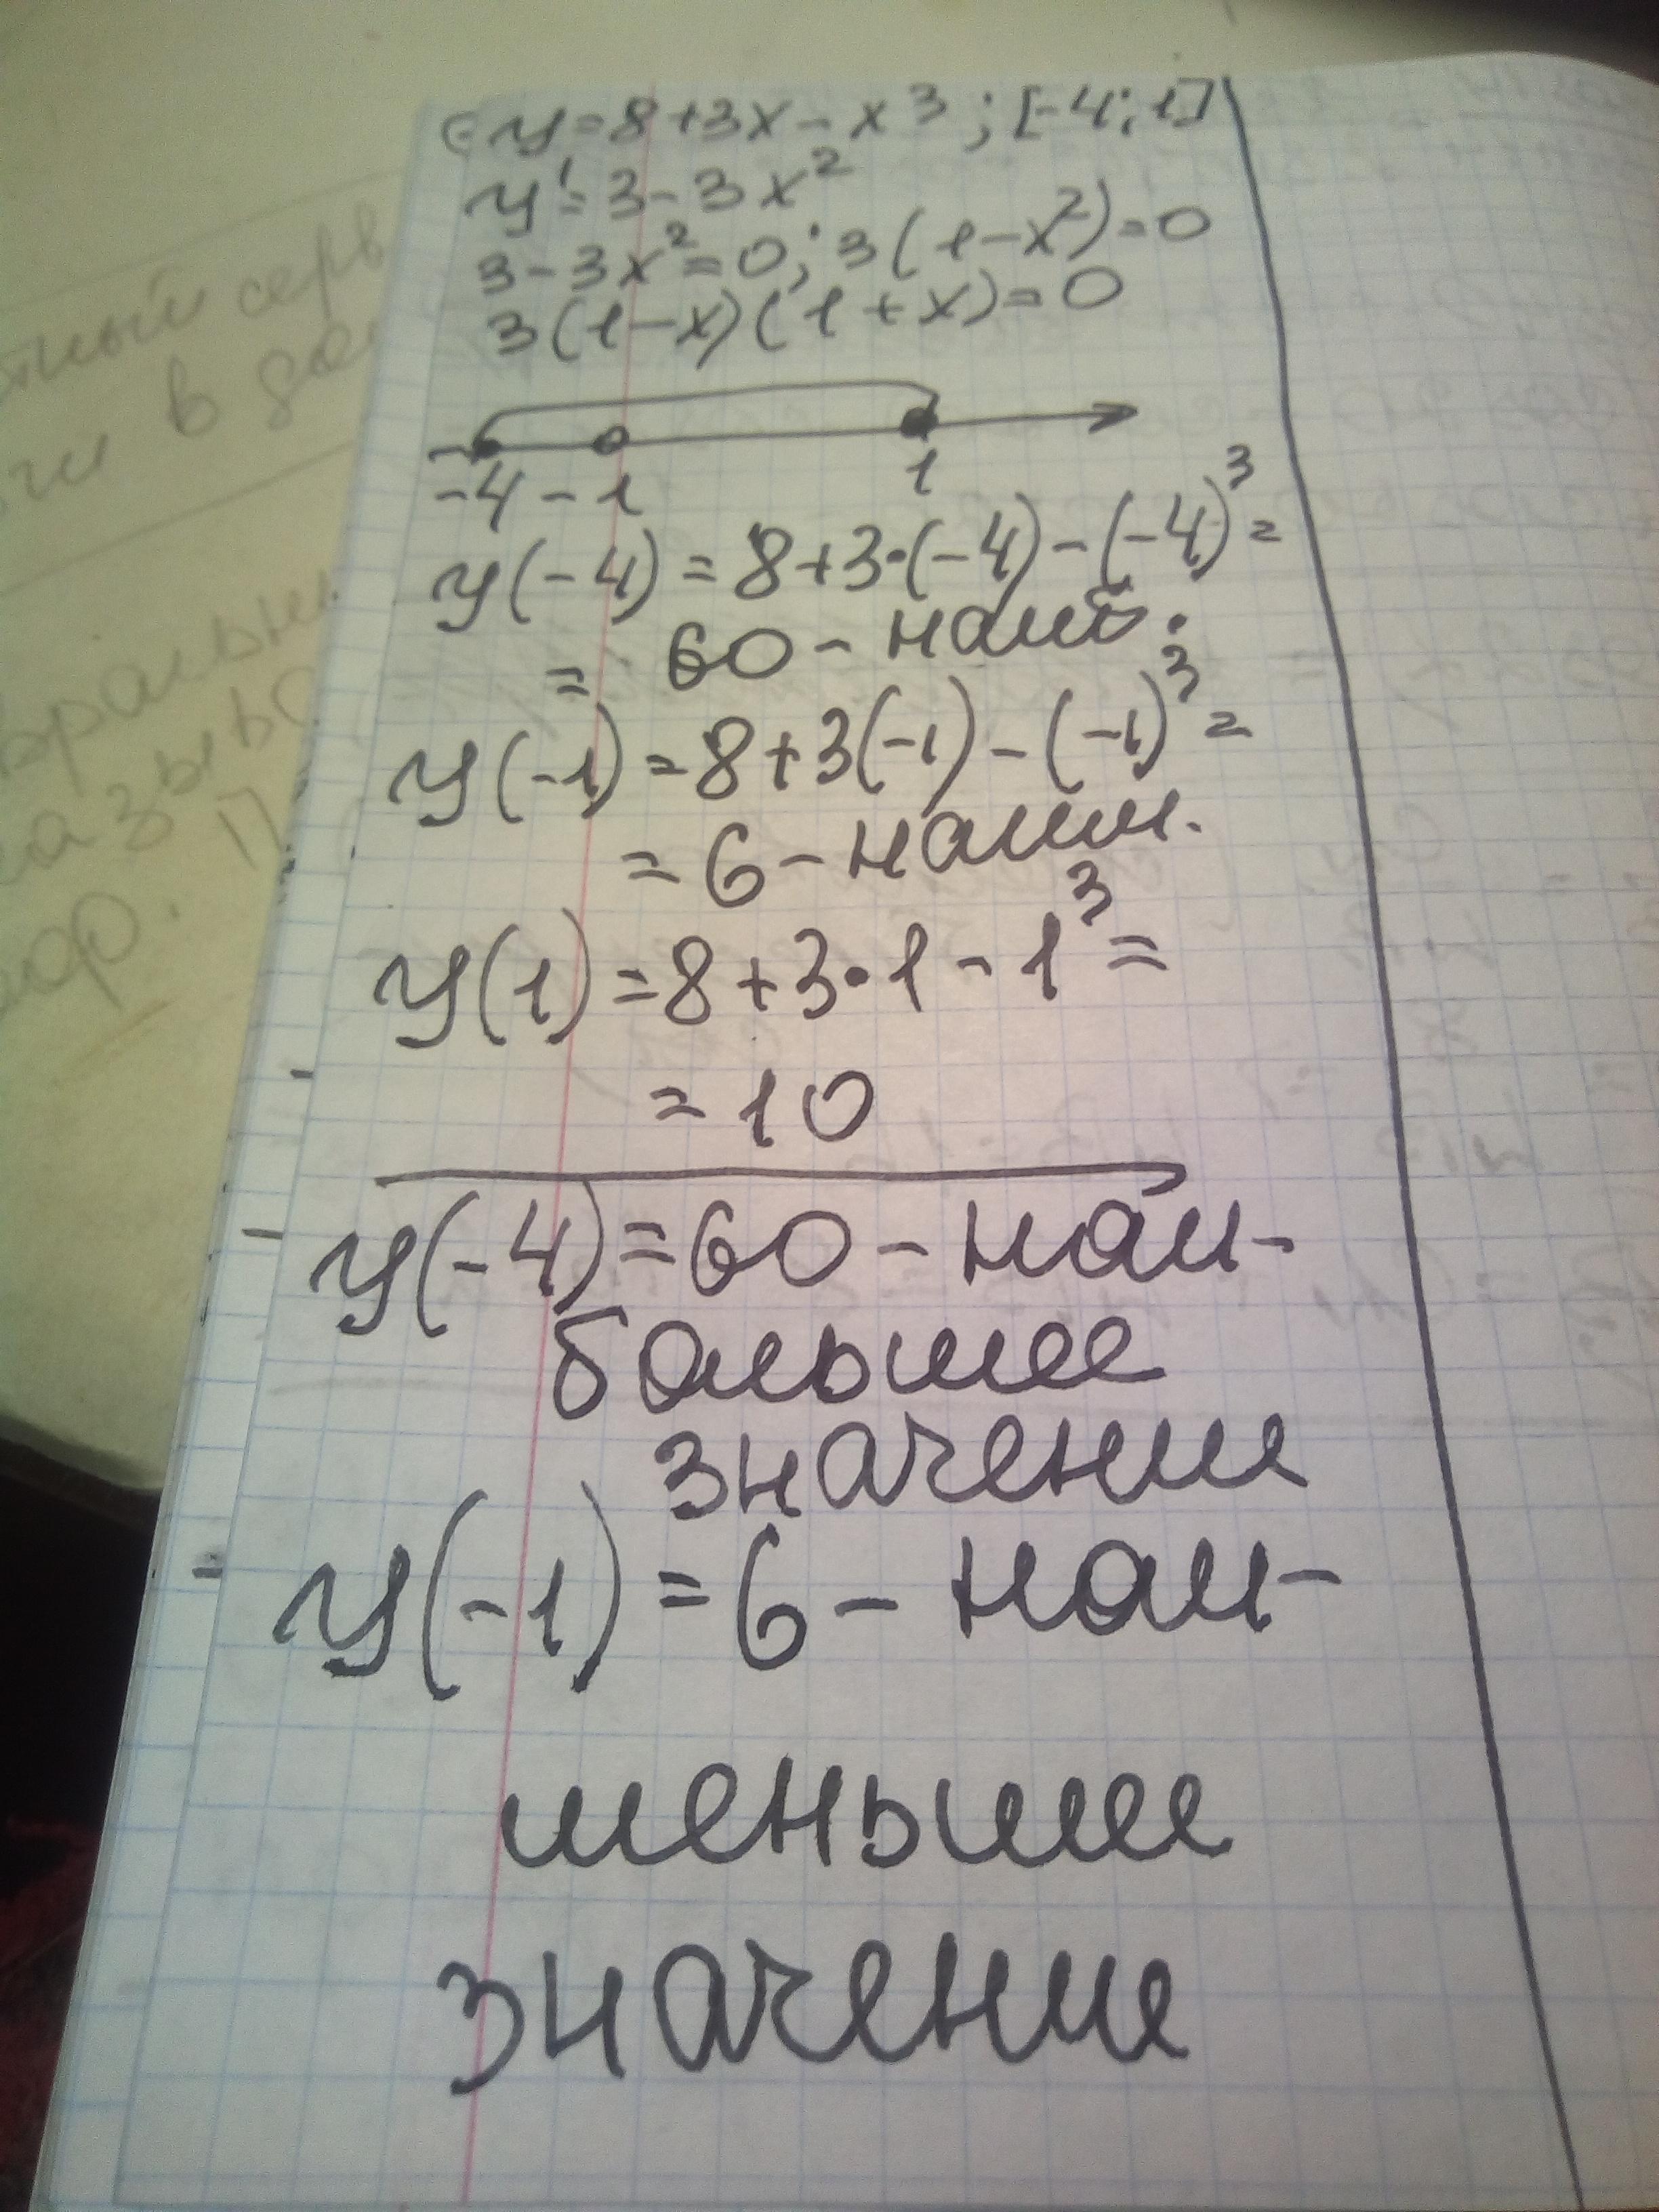 y=8+3x-x3; [-4; 1]
y'=3-3x²
3-3x²=0; 3(1-x²)=0
3(1-x)(1+x)=0
-4 -1 1
y(-4)=8+3·(-4)-(-4)³=
= 60-наиб.
y(-1)=8+3(-1)-(-1)³=
=6-наим.
y(1)=8+3·1-1³=
=10
y(-4)=60-наи-
большее
значение
y(-1)=6-наи-
меньшее
значение